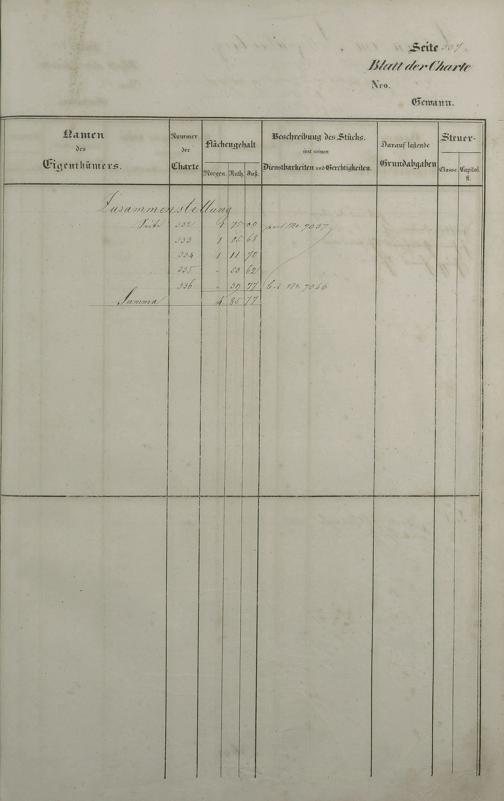 Seite 337
Blatt der Charte
Nro.
Gewann.
Namen des Eigenthümers.
Nummer der Charte
Flächengehalt
Morgen. Ruth. Fuß.
Beschreibung des Stücks.
mit seinen
Dienstbarkeiten und Gerechtigkeiten.
Darauf lastende Grundabgaben
Steuer-
Classe. Capital. fl.
Zusammenstellung
Seite 332 75 00 No. 7037
333 1 68
334 1 11 70
335 - 53 62
336 - 39 77 bis No. 7056
Summa 4 85 77